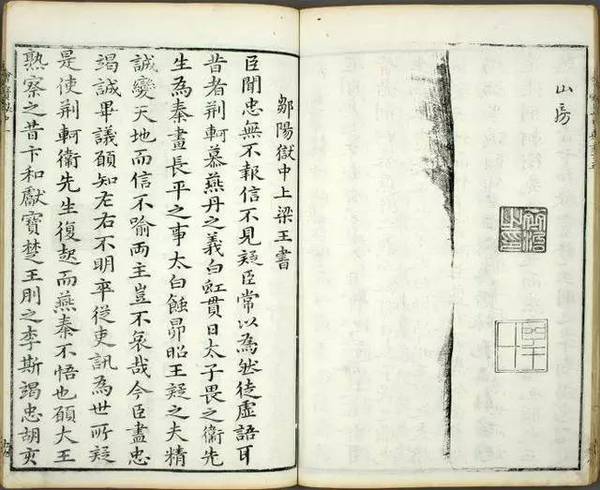 山房
鄒陽獄中上梁王書
臣聞忠無不報信不見疑臣常以為然徒虛語耳
昔者荊軻慕燕丹之義白虹貫日太子畏之衛先
生為秦畫長平之事太白蝕昴昭王疑之夫精
誠變天地而信不喻兩主豈不哀哉今臣盡忠
竭誠畢議願知左右不明卒從吏訊為世所疑
是使荊軻衛先生復起而燕秦不悟也願大王
熟察之昔卞和獻寶楚王刖之李斯竭忠胡亥